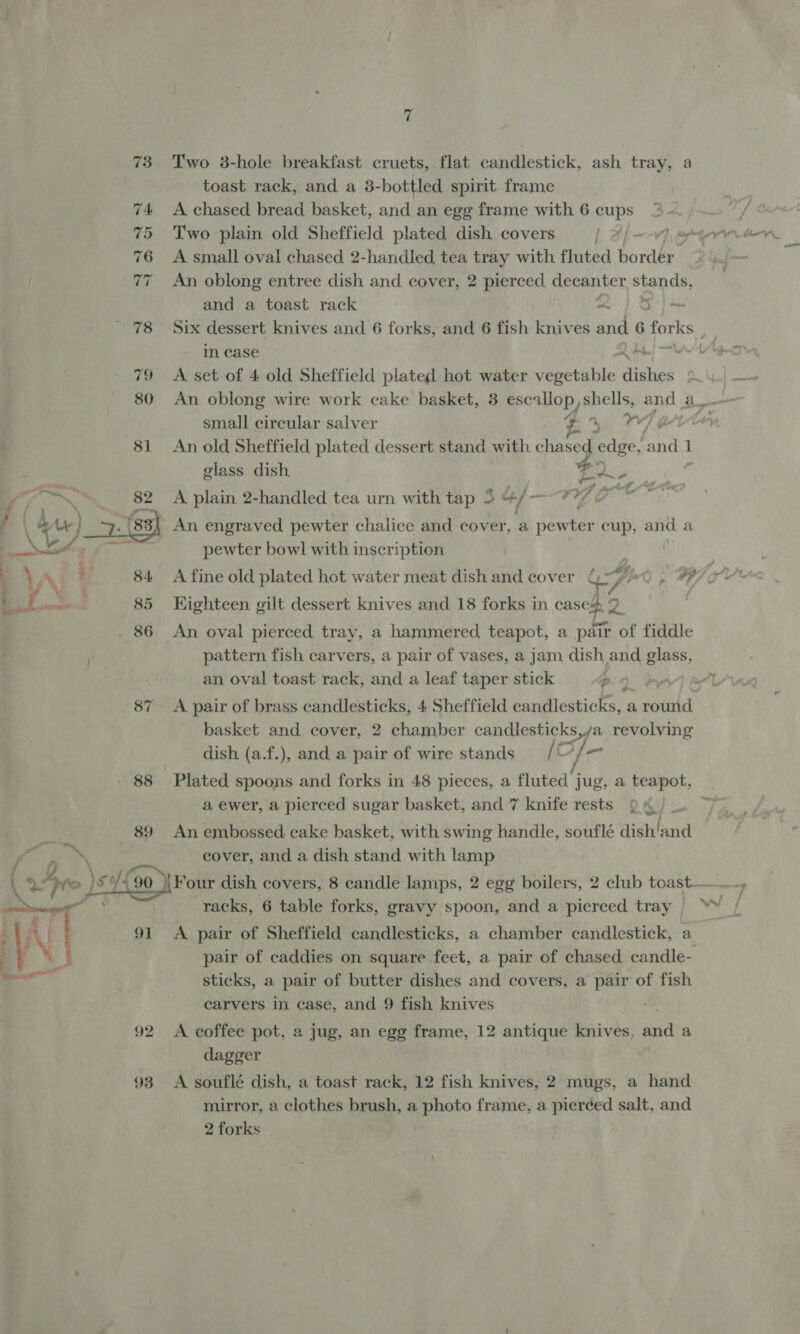 7
73 Two 3-hole breakfast cruets, flat candlestick, ash tray, a
toast rack, and a 3-bottled spirit frame
74 A chased bread basket, and an egg frame with 6 cups
75 Two plain old Sheffield plated dish covers
76 A small oval chased 2-handled tea tray with fluted border
77 An oblong entree dish and cover, 2 pierced decanter stands,
and a toast rack
78 Six dessert knives and 6 forks, and 6 fish knives and 6 forks
in case
79 A set of 4 old Sheffield plated hot water vegetable dishes
80 An oblong wire work cake basket, 3 escallop shells, and a
small circular salver
81 An old Sheffield plated dessert stand with chased edge, and 1
glass dish
82 A plain 2-handled tea urn with tap
83 An engraved pewter chalice and cover, a pewter cup, and a
pewter bowl with inscription
84 A fine old plated hot water meat dish and cover
85 Eighteen gilt dessert knives and 18 forks in case
86 An oval pierced tray, a hammered teapot, a pair of fiddle
pattern fish carvers, a pair of vases, a jam dish and glass,
an oval toast rack, and a leaf taper stick
87 A pair of brass candlesticks, 4 Sheffield candlesticks, a round
basket and cover, 2 chamber candlesticks, a revolving
dish (a.f.), and a pair of wire stands
88 Plated spoons and forks in 48 pieces, a fluted jug, a teapot,
a ewer, a pierced sugar basket, and 7 knife rests
89 An embossed cake basket, with swing handle, souflé dish and
cover, and a dish stand with lamp
90 Four dish covers, 8 candle lamps, 2 egg boilers, 2 club toast
racks, 6 table forks, gravy spoon, and a pierced tray
91 A pair of Sheffield candlesticks, a chamber candlestick, a
pair of caddies on square feet, a pair of chased candle-
sticks, a pair of butter dishes and covers, a pair of fish
carvers in case, and 9 fish knives
92 A coffee pot, a jug, an egg frame, 12 antique knives, and a
dagger
93 A souflé dish, a toast rack, 12 fish knives, 2 mugs, a hand
mirror, a clothes brush, a photo frame, a pierced salt, and
2 forks